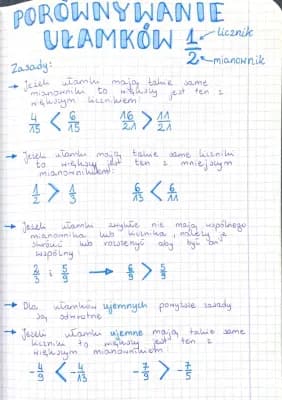 PORÓWNYWANIE
UŁAMKÓW 1/2 ← licznik
← mianownik
Zasady:
→ Jeżeli ułamki mają takie same
mianowniki to większy jest ten z
większym licznikiem
4/15 < 6/15 16/21 > 11/21
→ Jeżeli ułamki mają takie same liczniki
to większy jest ten z mniejszym
mianownikiem:
1/2 > 1/3 6/13 < 6/11
→ Jeżeli ułamki zwykłe nie mają wspólnego
mianownika lub licznika, należy je
skrócić lub rozszerzyć aby był on
wspólny
2/3 i 5/9 → 6/9 > 5/9
→ Dla ułamków ujemnych powyższe zasady
są odwrotne
→ Jeżeli ułamki ujemne mają takie same
liczniki to większy jest ten z
większym mianownikiem:
-4/9 < -4/13 -7/9 > -7/5